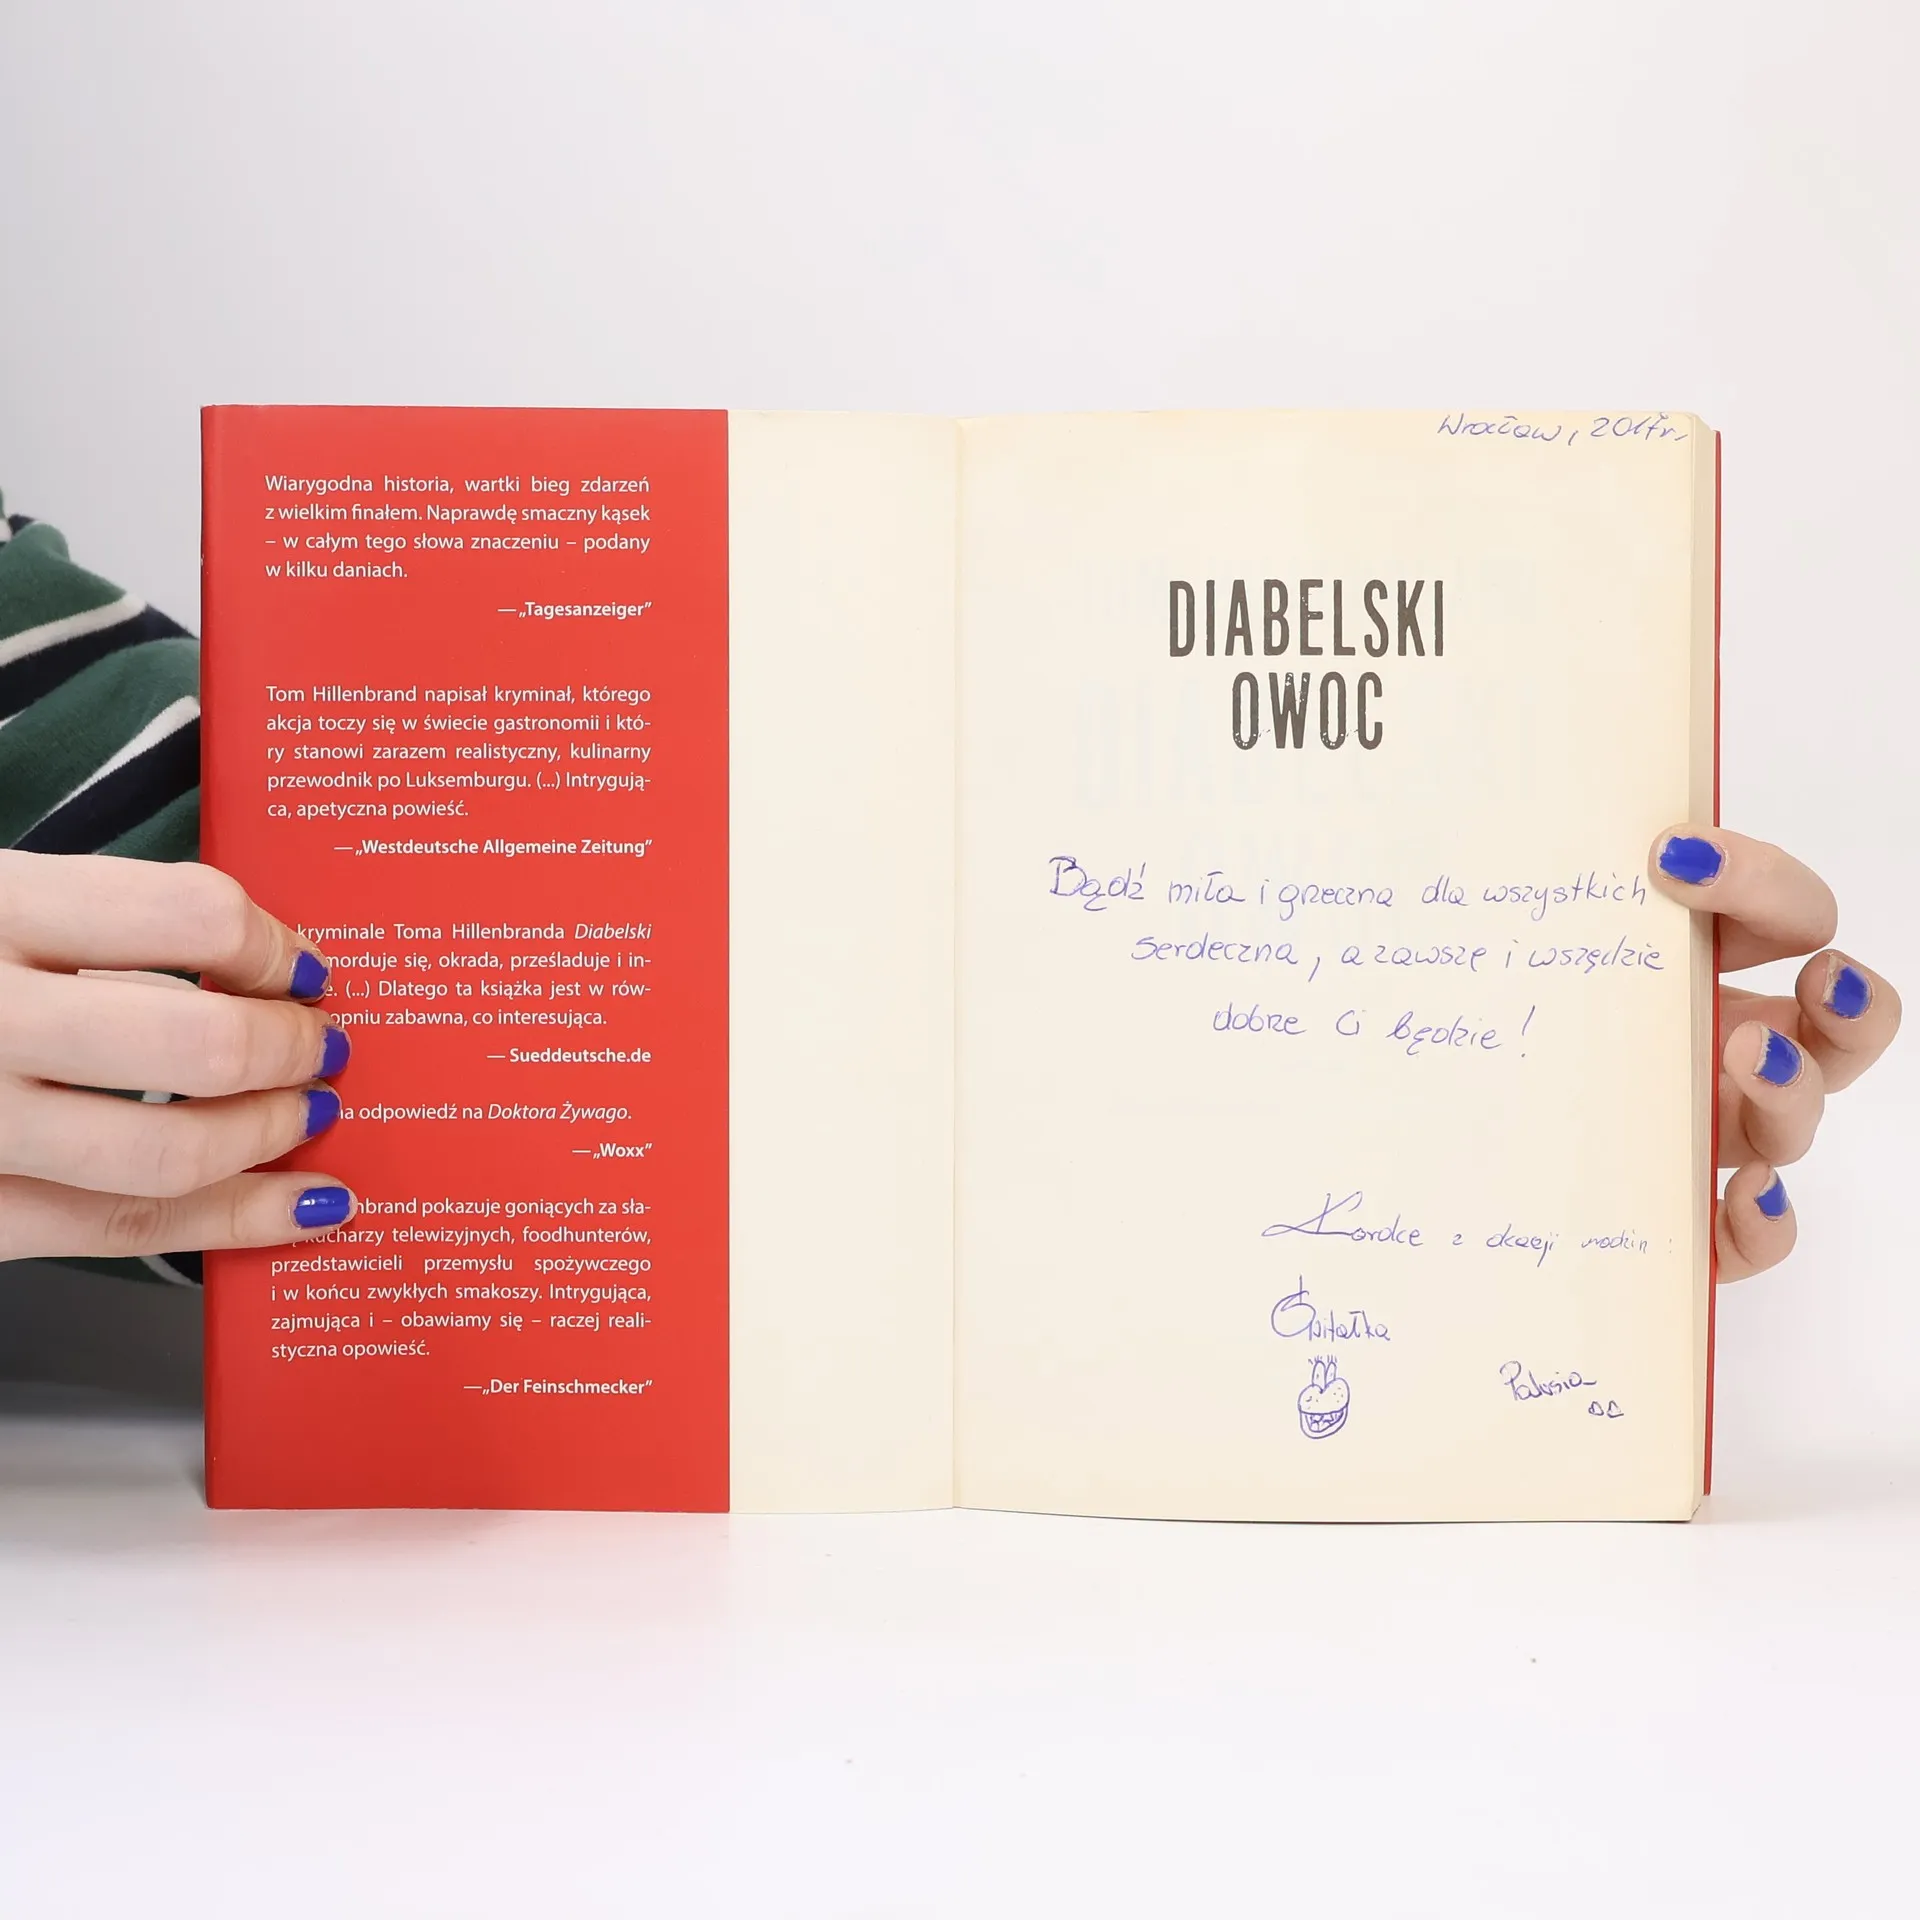 Wiarygodna historia, wartki bieg zdarzeń
z wielkim finałem. Naprawdę smaczny kąsek
– w całym tego słowa znaczeniu – podany
w kilku daniach.
— „Tagesanzeiger”
Tom Hillenbrand napisał kryminał, którego
akcja toczy się w świecie gastronomii i któ-
ry stanowi zarazem realistyczny, kulinarny
przewodnik po Luksemburgu. (...) Intrygują-
ca, apetyczna powieść.
— „Westdeutsche Allgemeine Zeitung”
kryminale Toma Hillenbranda Diabelski
morduje się, okrada, prześladuje i in-
(...) Dlatego ta książka jest w rów-
opniu zabawna, co interesująca.
— Sueddeutsche.de
odpowiedź na Doktora Żywago.
— „Woxx”
nbrand pokazuje goniących za sła-
kucharzy telewizyjnych, foodhunterów,
przedstawicieli przemysłu spożywczego
i w końcu zwykłych smakoszy. Intrygująca,
zajmująca i – obawiamy się – raczej reali-
styczna opowieść.
— „Der Feinschmecker”
Wrocław, 2017r.
DIABELSKI
OWOC
Bądź miła i grzeczna dla wszystkich
serdeczna, a zawsze i wszędzie
dobrze Ci będzie!
z okazji urodzin :